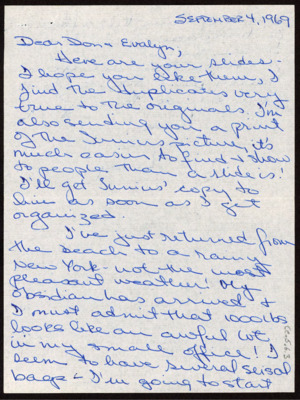 SEPTEMBER 4, 1969
Dear Don & Evalyn,
Here are your slides -
I hope you like them, I
find the duplicates very
true to the originals. I'm
also sending you a print
of the Junius picture, it's
much easier to find & show
to people than a slide is!
I'll get Junius' copy to
him as soon as I get
organized.
I've just returned from
the beach to a rainy
New York - not the most
pleasant weather! My
obsidian has arrived &
I must admit that 1000 lbs
looks like an awful lot
in my small office! I
seem to have several seisol
bags - I'm going to start